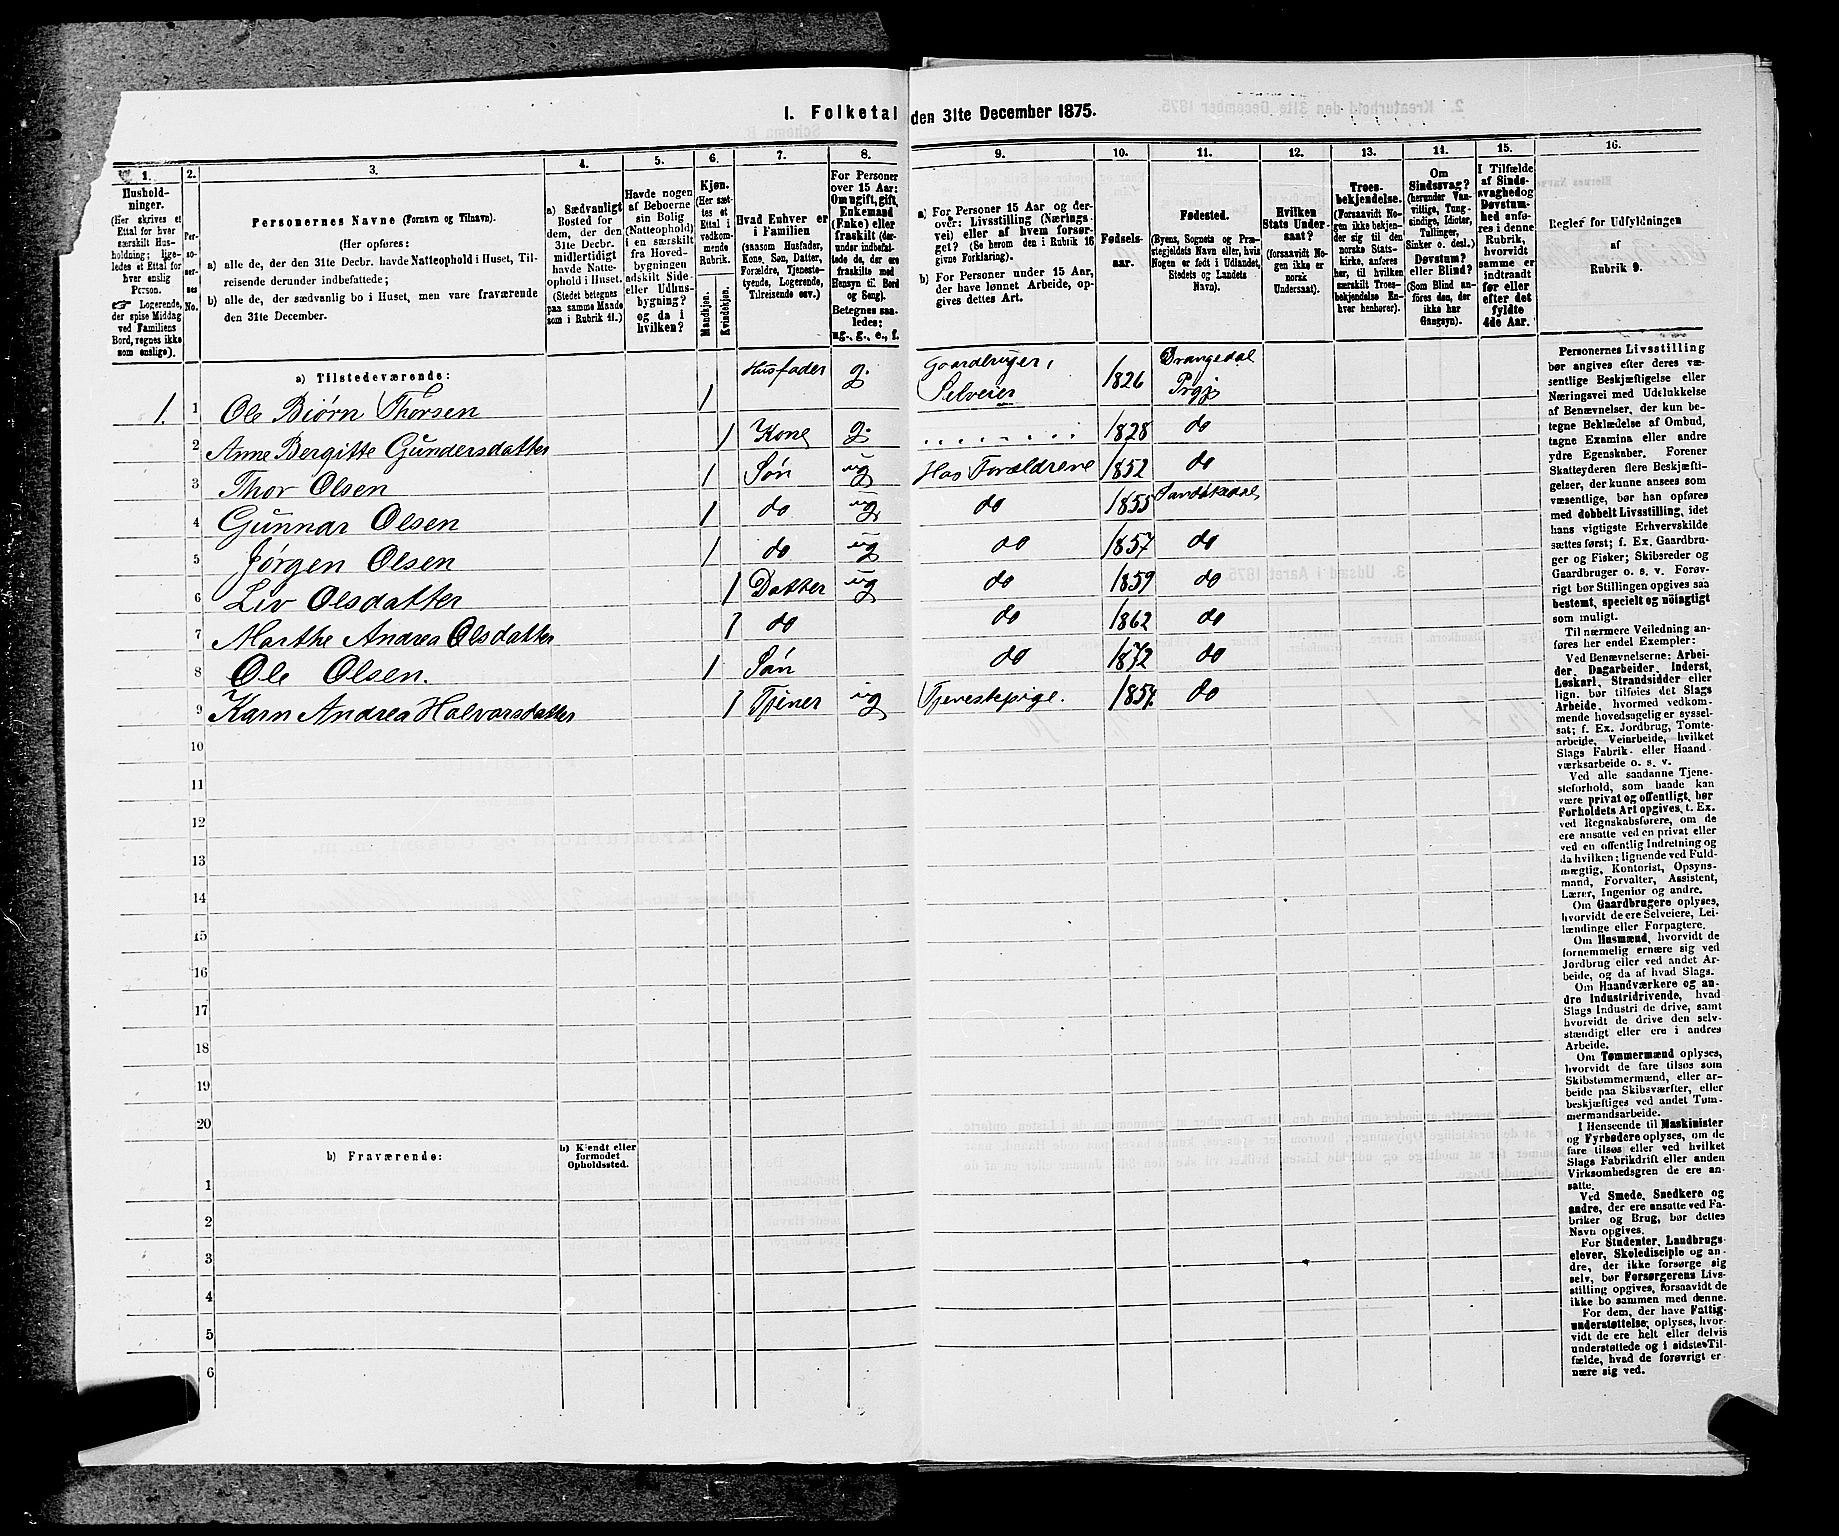 I. Folketal den 31te December 1875.
1.
Hushold-
ninger.
(Her skrives et
Ettal for hver
særskilt Hus-
holdning; lige-
ledes et Ettal for
hver enslig
Person.
☞ Logerende,
der spise Middag
ved Familiens
Bord, regnes ikke
som enslige).
2.
Per-
so-
ner-
nes
No.
3.
Personernes Navne (Fornavn og Tilnavn).
(Her opføres:
a) alle de, der den 31te Decbr. havde Natteophold i Huset, Til-
reisende derunder indbefattede;
b) alle de, der sædvanlig bo i Huset, men vare fraværende
den 31te December.
4.
a) Sædvanligt
Bosted for
dem, der den
31te Decbr.
midlertidigt
havde Natte-
ophold i Huset.
(Stedet betegnes
paa samme Maade
som i Rubrik 11.)
5.
Havde nogen
af Beboerne
sin Bolig
(Natteophold)
i en særskilt
fra Hoved-
bygningen
adskilt Side-
eller Udhus-
bygning?
og da i
hvilken?
6.
Kjøn.
(Her sæt-
tes et
Ettal i
vedkom-
mende
Rubrik.
Mandkjøn.
Kvindekjøn.
7.
Hvad Enhver er
i Familien
(saasom Husfader,
Kone, Søn, Datter,
Forældre, Tjeneste-
tyende, Logerende,
Tilreisende osv.)
8.
For Personer
over 15 Aar:
Om ugift, gift,
Enkemand
(Enke) eller
fraskilt (der-
under indbefat-
tede de, der ere
fraskilte med
Hensyn til Bord
og Seng).
Betegnes saa-
ledes:
ug., g., e., f.
9.
a) For Personer 15 Aar og der-
over: Livsstilling (Nærings-
vei) eller af hvem forsør-
get? (Se herom den i Rubrik 16
givne Forklaring).
b) For Personer under 15 Aar,
der have lønnet Arbeide, op-
gives dettes Art.
10.
Fødsels-
aar.
11.
Fødested.
(Byens, Sognets og Præ-
stegjeldets Navn eller, hvis
Nogen er født i Udlandet,
Stedets og Landets
Navn).
12.
Hvilken
Stats Under-
saat?
(forsaavidt No-
gen ikke er
norsk
Undersaat).
13.
Troes-
bekjendelse.
(Forsaavidt No-
gen ikke bekjen-
der sig til den
norske Stats-
kirke, anføres
her, til hvilken
særskilt Troes-
bekjendelse En-
hver henhører).
14.
Om
Sindssvag?
(herunder Van-
vittige, Tung-
sindige, Idioter,
Tullinger,
Sinker o. desl.)
Døvstum?
eller Blind?
(Som Blind an-
føres den, der
ikke har
Gangsyn).
15.
I Tilfælde
af Sinds-
svaghed og
Døvstum-
hed anfø-
res i denne
Rubrik,
hvorvidt
samme er
indtraadt
før eller
efter det
fyldte
4de Aar.
16.
Regler for Udfyldningen
af
Rubrik 9.
a) Tilstedeværende:
1. 1 Ole Biørn Thorsen 1 Husfader g. Gaardbruger, Selveier 1826 Drangedal Prgj
2 Anne Bergitte Gundersdatter 1 Kone g. ........ 1828 do
3 Thor Olsen 1 Søn ug Hos Forældrene 1852 do
4 Gunnar Olsen 1 do ug do 1855 Sandøkedal
5 Jørgen Olsen 1 do ug do 1857 do
6 Liv Olsdatter 1 Datter ug do 1859 do
7 Marthe Andrea Olsdatter 1 do do 1862 do
8 Ole Olsen. 1 Søn do 1872 do
9 Karn Andrea Halvorsdatter 1 Tjener ug Tjenestepige. 1854 do
10
11
12
13
14
15
16
17
18
19
20
b) Fraværende:
b) Kjendt eller
formodet
Opholdssted.
1
2
3
4
5
6
Personernes Livsstilling
bør angives efter deres væ-
sentlige Beskjæftigelse eller
Næringsvei med Udelukkelse
af Benævnelser, der kun be-
tegne Beklædelse af Ombud,
tagne Examina eller andre
ydre Egenskaber. Forener
Skatteyderen flere Beskjæfti-
gelser, der kunne ansees som
væsentlige, bør han opføres
med dobbelt Livsstilling, idet
hans vigtigste Erhvervskilde
sættes først; f. Ex. Gaardbru-
ger og Fisker; Skibsreder og
Gaardbruger o. s. v. Forøv-
rigt bør Stillingen opgives saa
bestemt, specielt og nöiagtigt
som muligt.
Til nærmere Veiledning an-
føres her endel Exempler:
Ved Benævnelserne: Arbei-
der, Dagarbeider, Inderst,
Løskarl, Strandsidder eller
lign. bør tilføies det Slags
Arbeide, hvormed vedkom-
mende hovedsagelig er syssel-
sat; f. Ex. Jordbrug, Tomte-
arbeide, Veiarbeide, hvilket
Slags Fabrik- eller Haand-
værksarbeide o. s. v.
Ved alle saadanne Tjene-
steforhold, som baade kan
være privat og offentligt, bør
Forholdets Art opgives, t. Ex.
ved Regnskabsførere, om de
ere ansatte ved en privat eller
ved en offentlig Indretning og
da hvilken; lignende ved Fuld-
mægtig, Kontorist, Opsyns-
mand, Forvalter, Assistent,
Lærer, Ingeniør og andre.
Om Gaardbrugere oplyses,
hvorvidt de ere Selveiere, Lei-
lændinge eller Forpagtere.
Om Husmænd, hvorvidt de
fornemmelig ernære sig ved
Jordbrug eller ved andet Ar-
beide, og da af hvad Slags.
Om Haandværkere og an-
dre Industridrivende, hvad
Slags Industri de drive, samt
hvorvidt de drive den selv-
stændigt eller ere i andres
Arbeide.
Om Tømmermænd oplyses,
hvorvidt de fare tilsøs som
Skibstømmermænd, eller ar-
beide paa Skibsværfter, eller
beskjæftiges ved andet Tøm-
mermandsarbeide.
I Henseende til Maskinister
og Fyrbødere oplyses, om de
fare tilsøs eller ved hvilket
Slags Fabrikdrift eller anden
Virksomhedsgren de ere an-
satte.
Ved Smede, Snedkere og
andre, der ere ansatte ved Fa-
briker og Brug, bør dettes
Navn opgives.
For Studenter, Landbrugs-
elever, Skoledisciple og an-
dre, der ikke forsørge sig
selv, bør Forsørgerens Livs-
stilling opgives, forsaavidt de
ikke bo sammen med denne.
For dem, der have Fattig-
understøttelse, oplyses, hvor-
vidt de ere helt eller delvis
understøttede og i sidste Til-
fælde, hvad de forøvrigt er-
nære sig ved.